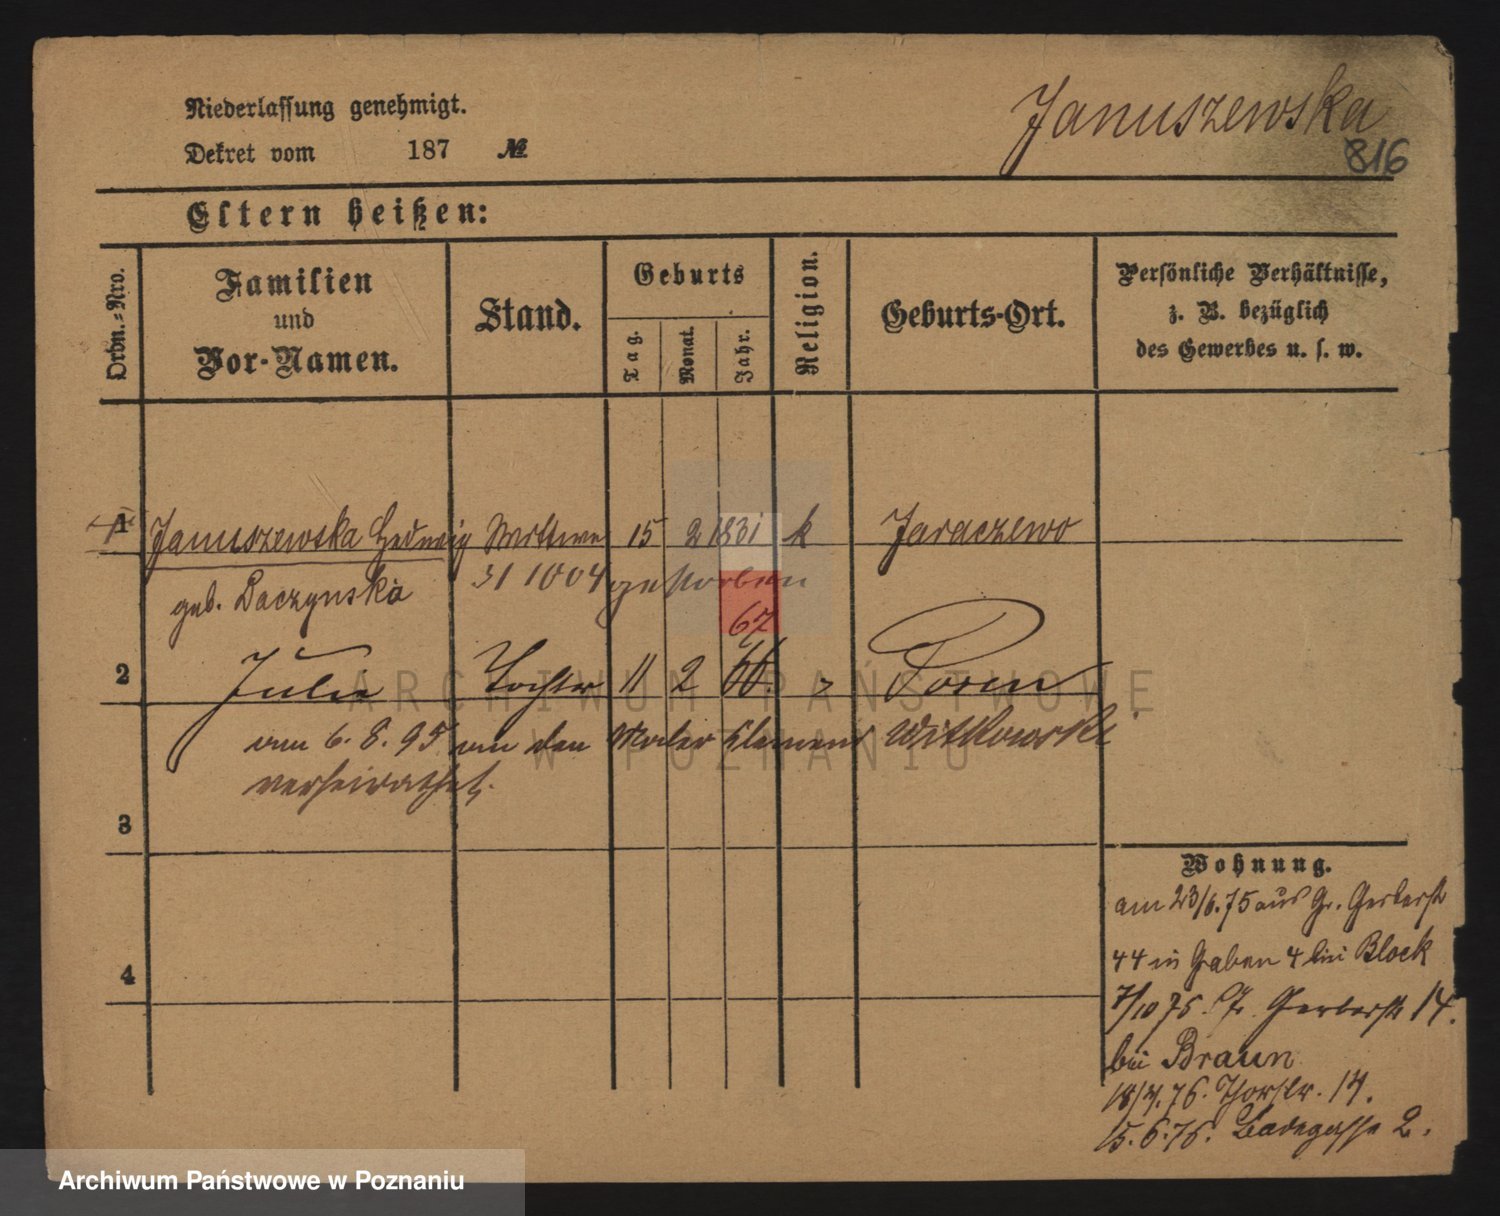 Niederlassung genehmigt.
Dekret vom 187 №
Januszewska
816
Eltern heißen:
Ordn.-Nro.
Familien und Vor-Namen.
Stand.
Geburts
Tag.
Monat.
Jahr.
Religion.
Geburts-Ort.
Persönliche Verhältnisse, z. B. bezüglich des Gewerbes u. s. w.
1 Januszewska Hedwig Wittwe 15 2 1831 k Jaraczewo
geb. Daczynska
gestorben
67
2 Julie Tochter 11 2 66. Posen
am 6. 8. 95 an den Maler Clemens Witkowski
verheirathet.
3
4
Wohnung.
am 23/6.75 aus Gr. Gerberstr
44 in Graben 4 bei Block
7/10 75. Gerberstr 14.
bei Braun
18/4.76. Thorstr. 14.
15.6.76. Badegasse 2.
ARCHIWUM PAŃSTWOWE
W POZNANIU
Archiwum Państwowe w Poznaniu